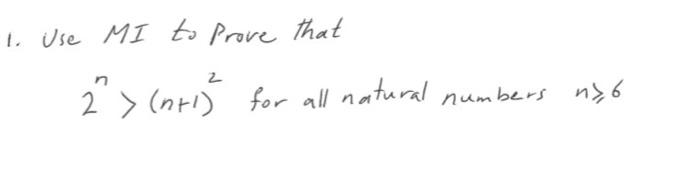 1. Use MI to Prove that
2ⁿ > (n+1)² for all natural numbers n ⩾ 6